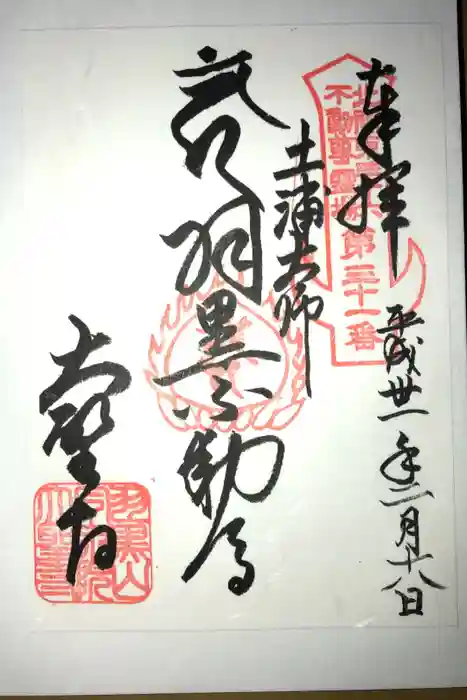 奉拝
平成丗一年二月十八日
北関東三十六
不動尊霊場
第三十一番
土浦大師
羽黒不動尊
大聖寺
羽黒山
大聖寺